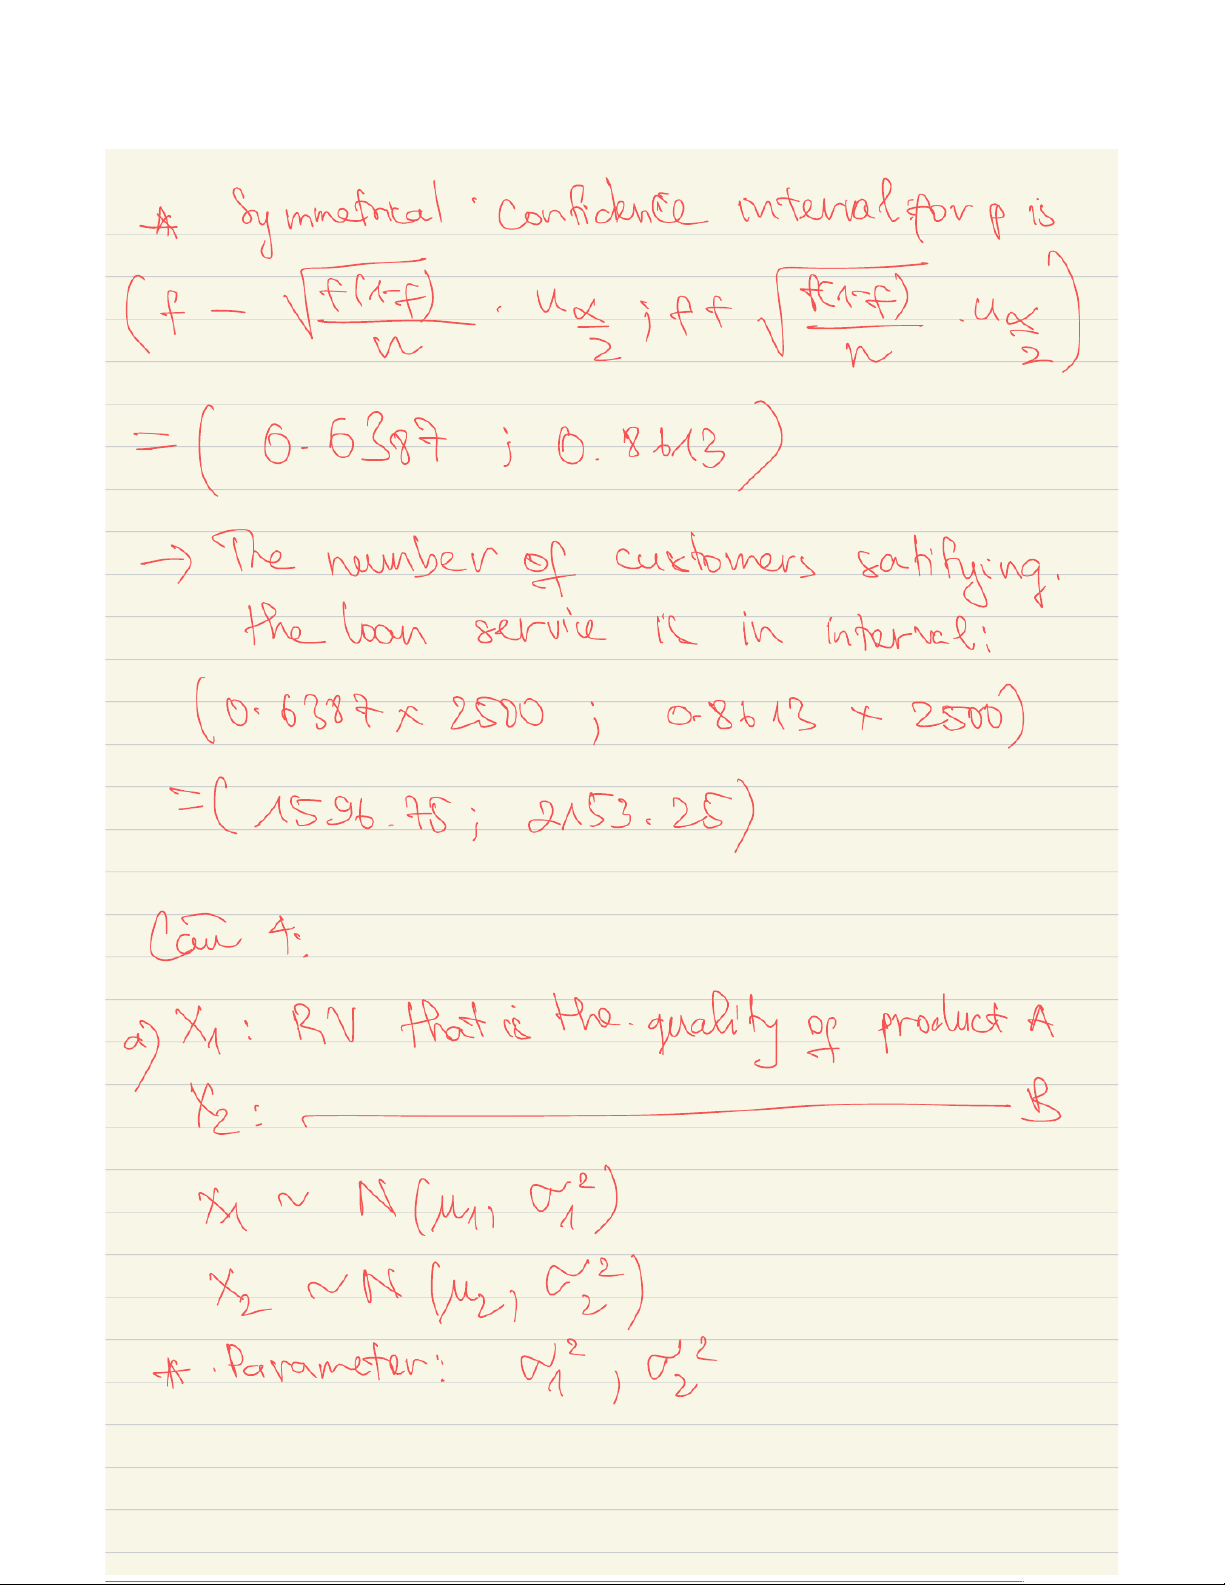 * Symmetrical confidence interval for p is
(f - √(f(1-f)/n) . u_α/2 ; f + √(f(1-f)/n) . u_α/2)
= ( 0.6387 ; 0.8613 )
→ The number of customers satifying
the loan service is in interval:
(0.6387 x 2500 ; 0.8613 x 2500)
= ( 1596.75 ; 2153.25 )
Câu 4:
a) X₁ : RV that is the quality of product A
X₂ : ———————— B
X₁ ~ N(μ₁, σ₁²)
X₂ ~ N(μ₂, σ₂²)
* Parameter: σ₁², σ₂²